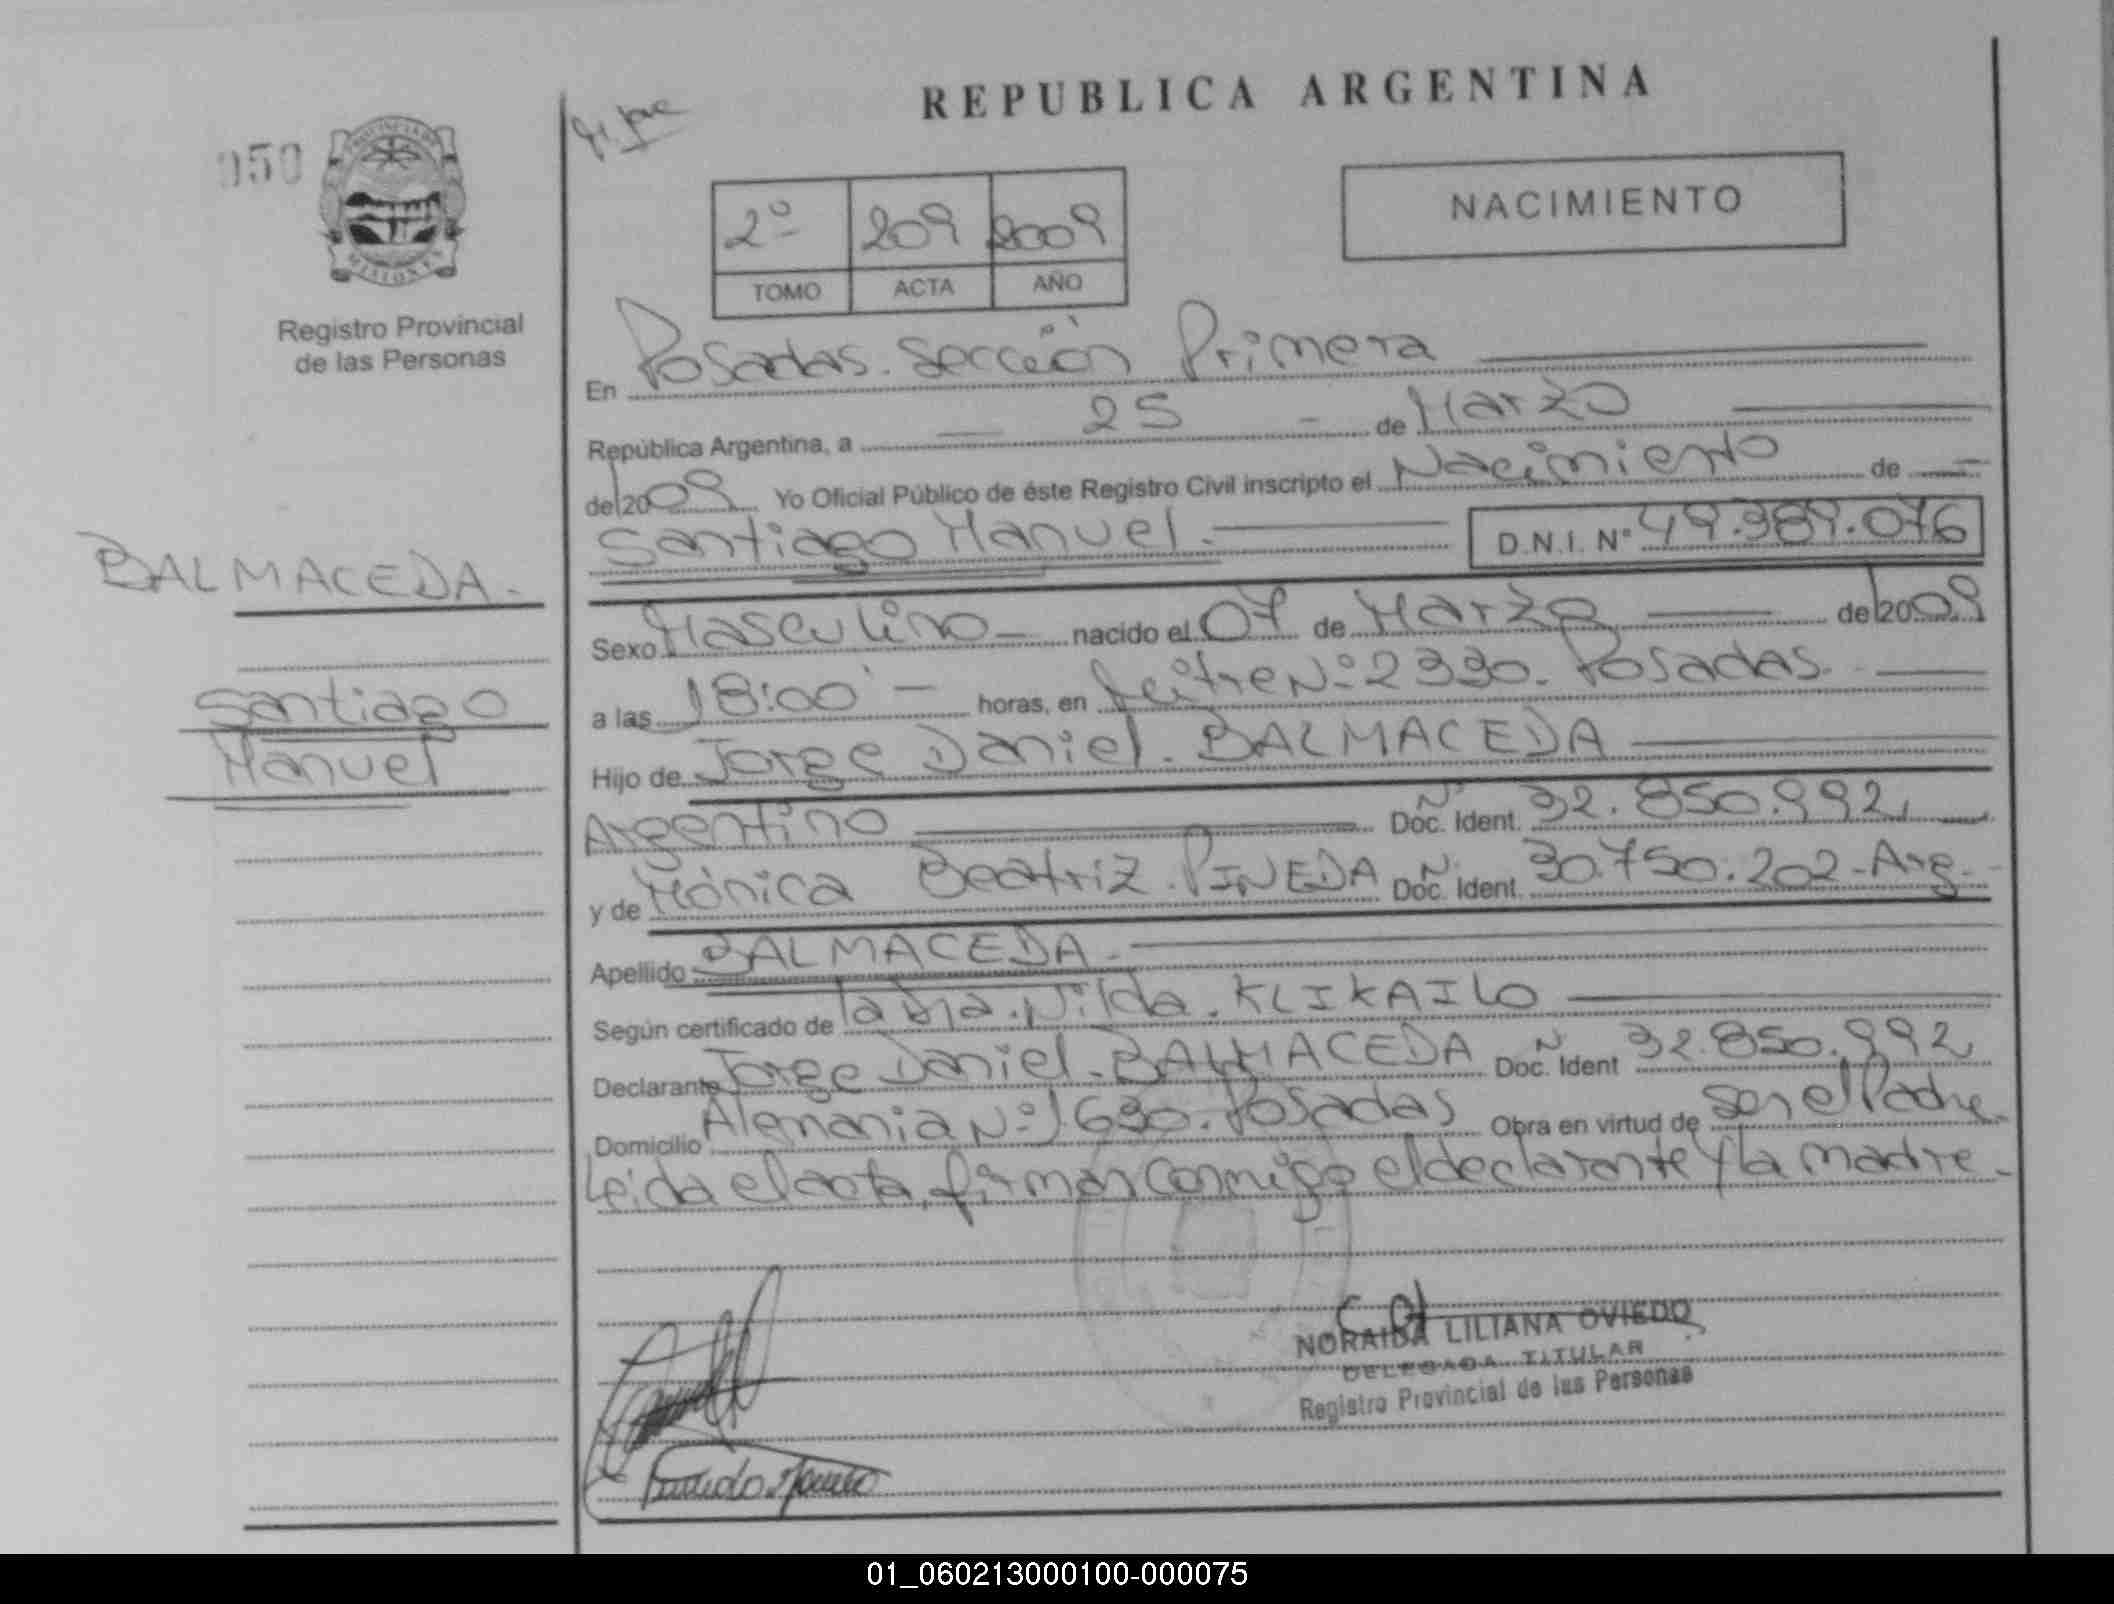 REPUBLICA ARGENTINA
050
PROVINCIA DE
MISIONES
Registro Provincial
de las Personas
2º 209 2009
TOMO ACTA AÑO
NACIMIENTO
En Posadas. Sección Primera
República Argentina, a 25 de Marzo
de 2009 Yo Oficial Público de éste Registro Civil inscripto el Nacimiento de
Santiago Manuel. D.N.I. Nº 49.389.076
BALMACEDA.
Santiago
Manuel
Sexo Masculino nacido el 07 de Marzo de 2009
a las 18:00 horas, en Nº 2330. Posadas.
Hijo de Jorge Daniel. BALMACEDA
Argentino Nº Doc. Ident. 32.850.992
y de Mónica Beatriz. PINEDA Nº Doc. Ident. 30.750.202-Arg.
Apellido BALMACEDA.
Según certificado de la Dra. Nilda. KLIKAILO
Declarante Jorge Daniel. BALMACEDA Nº Doc. Ident 32.850.992
Domicilio Alemania Nº 1630. Posadas Obra en virtud de ser el Padre.
Leída el acta, firman conmigo el declarante y la madre.
NORAIDA LILIANA OVIEDO
DELEGADA TITULAR
Registro Provincial de las Personas
01_060213000100-000075